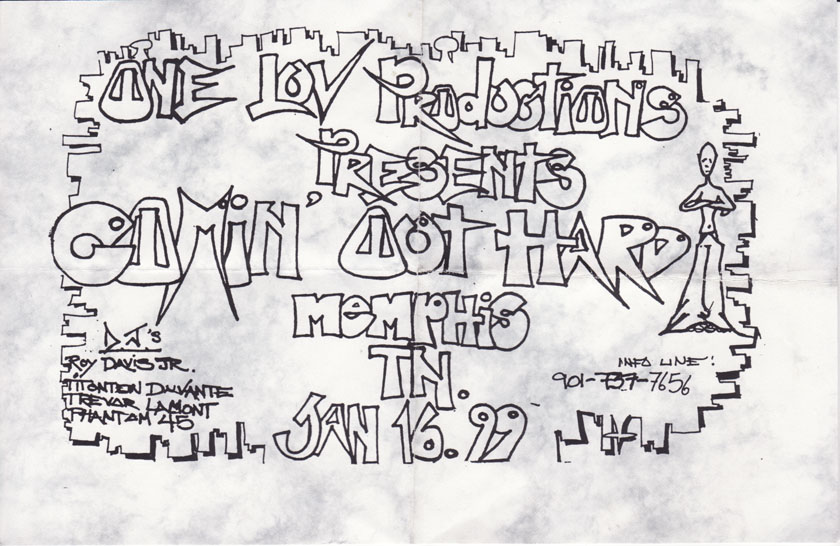 ONE LOV PRODUCTIONS
PRESENTS
COMIN' OUT HARD
MEMPHIS
TN.
JAN 16. 99
DJ's
ROY DAVIS JR.
TITONTON DUVANTE
TREVOR LAMONT
PHANTOM 45
INFO LINE:
901-737-7656